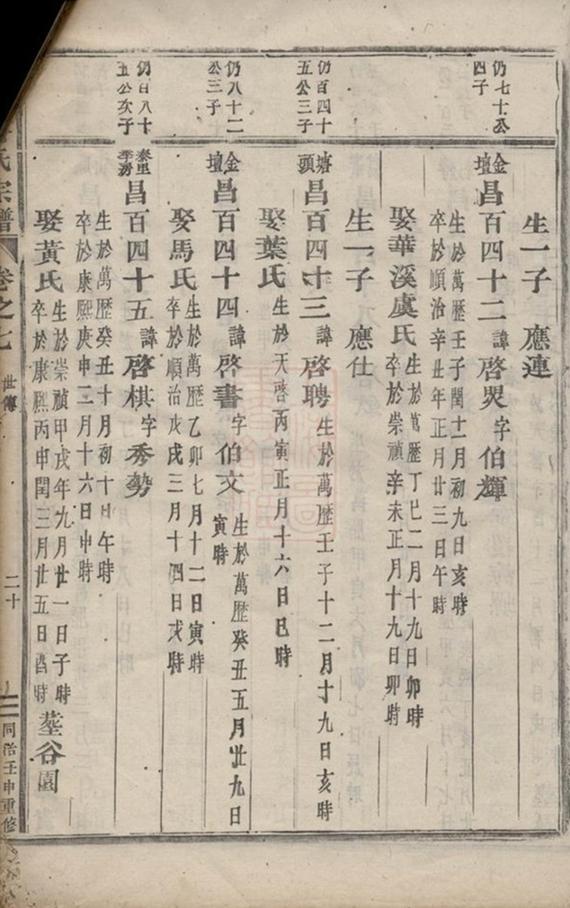 生一子 應連
仍七十公
四子
金壇昌百四十二諱啓煚字伯輝
生於萬歷壬子閏十一月初九日亥時
卒於順治辛丑年正月廿三日午時
娶華溪虞氏生於萬歷丁巳二月十九日卯時
卒於崇禎辛未正月十九日卯時
生一子 應仕
仍百四十
五公三子
塘頭昌百四十三諱啓聘生於萬歷壬子十二月十九日亥時
娶葉氏生於天啓丙寅正月十六日巳時
仍八十二
公三子
金壇昌百四十四諱啓書字伯文生於萬歷癸丑五月廿九日
寅時
娶馬氏生於萬歷乙卯七月十二日寅時
卒於順治戊戌三月十四日戌時
仍百八十
五公次子
秦里季房昌百四十五諱啓棋字秀勢
生於萬歷癸丑十月初十日午時
卒於康熙庚申二月十六日申時
娶黃氏生於崇禎甲戌年九月廿一日子時
卒於康熙丙申閏三月廿五日酉時
塟谷園
氏宗譜 卷之七 世傳 二十 同治壬申重修